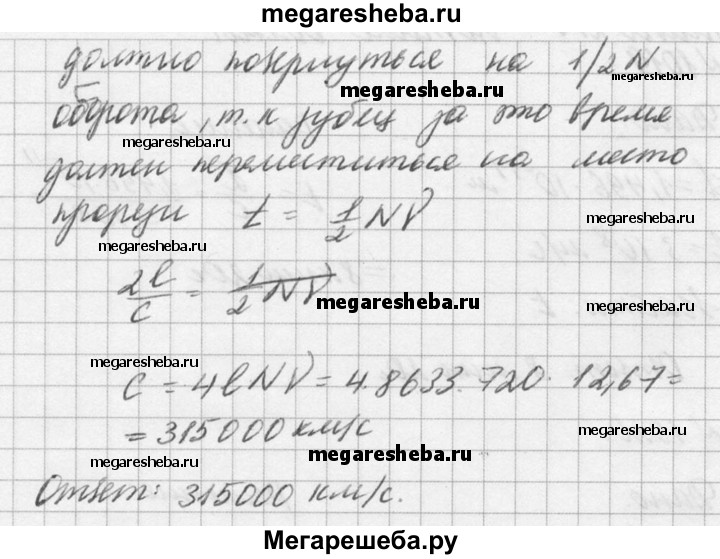 megaresheba.ru
должно повернуться на 1/2 N
megaresheba.ru
megaresheba.ru
оборота, т.к зубец за это время
megaresheba.ru
megaresheba.ru
должен переместиться на место
прорези t = 1/2 Nν
megaresheba.ru
2l/c = 1/2Nν
megaresheba.ru
megaresheba.ru
megaresheba.ru
c = 4lNν = 4.8633.720. 12,67=
= 315000 км/с
megaresheba.ru
megaresheba.ru
megaresheba.ru
Ответ: 315000 км/с.
Мегарешеба.ру